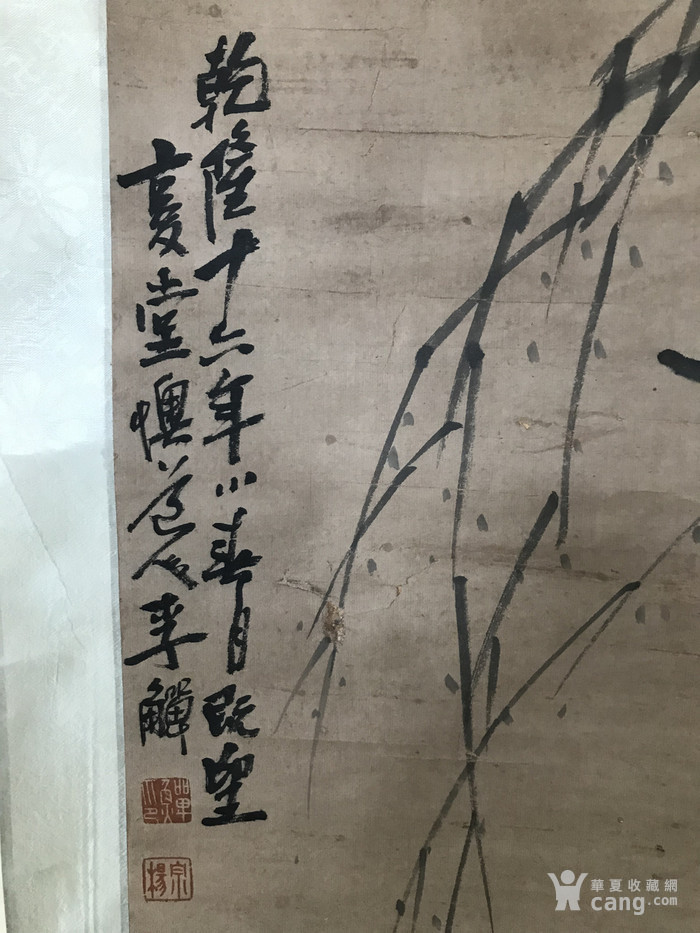 乾隆十六年小春月既望
复堂懊道人李觶
宗楊
華夏收藏網
cang.com